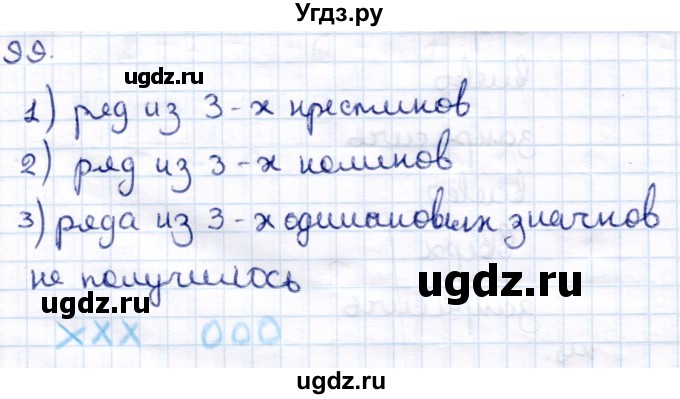 Угдз.ру
99.
ugdz.ru
1) ряд из 3-х крестиков
2) ряд из 3-х ноликов
ugdz.ru
3) ряда из 3-х одинаковых значков
не получилось
ugdz.ru
ugdz.ru
XXX 000
ugdz.ru